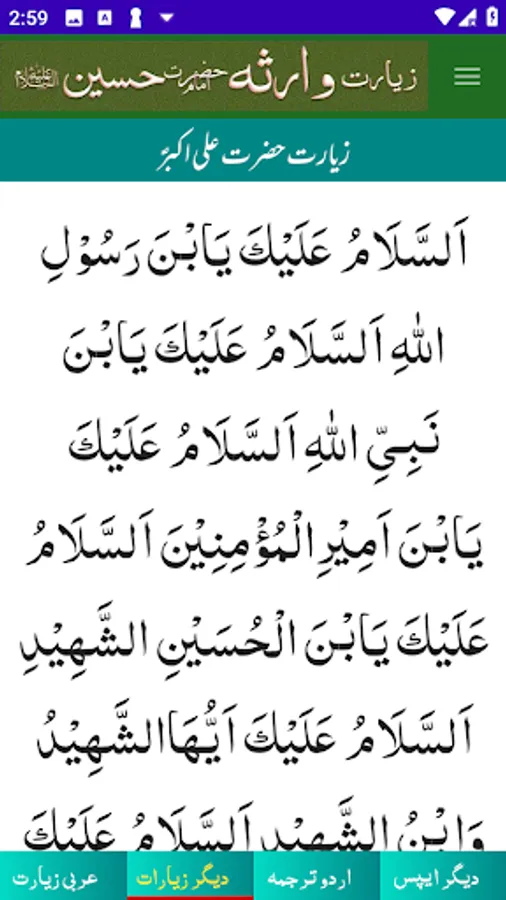 2:59
زیارت وارثہ حضرت امام حسین علیہ السلام
زیارت حضرت علی اکبرؑ
اَلسَّلَامُ عَلَيْكَ يَابْنَ رَسُوْلِ
اللهِ اَلسَّلَامُ عَلَيْكَ يَابْنَ
نَبِيِّ اللهِ اَلسَّلَامُ عَلَيْكَ
يَابْنَ اَمِيْرِ الْمُؤْمِنِيْنَ اَلسَّلَامُ
عَلَيْكَ يَابْنَ الْحُسَيْنِ الشَّهِيْدِ
اَلسَّلَامُ عَلَيْكَ اَيُّهَاالشَّهِيْدُ
وَابْنُ الشَّهِيْدِ اَلسَّلَامُ عَلَيْكَ
دیگر ایپس اردو ترجمہ دیگر زیارات عربی زیارت